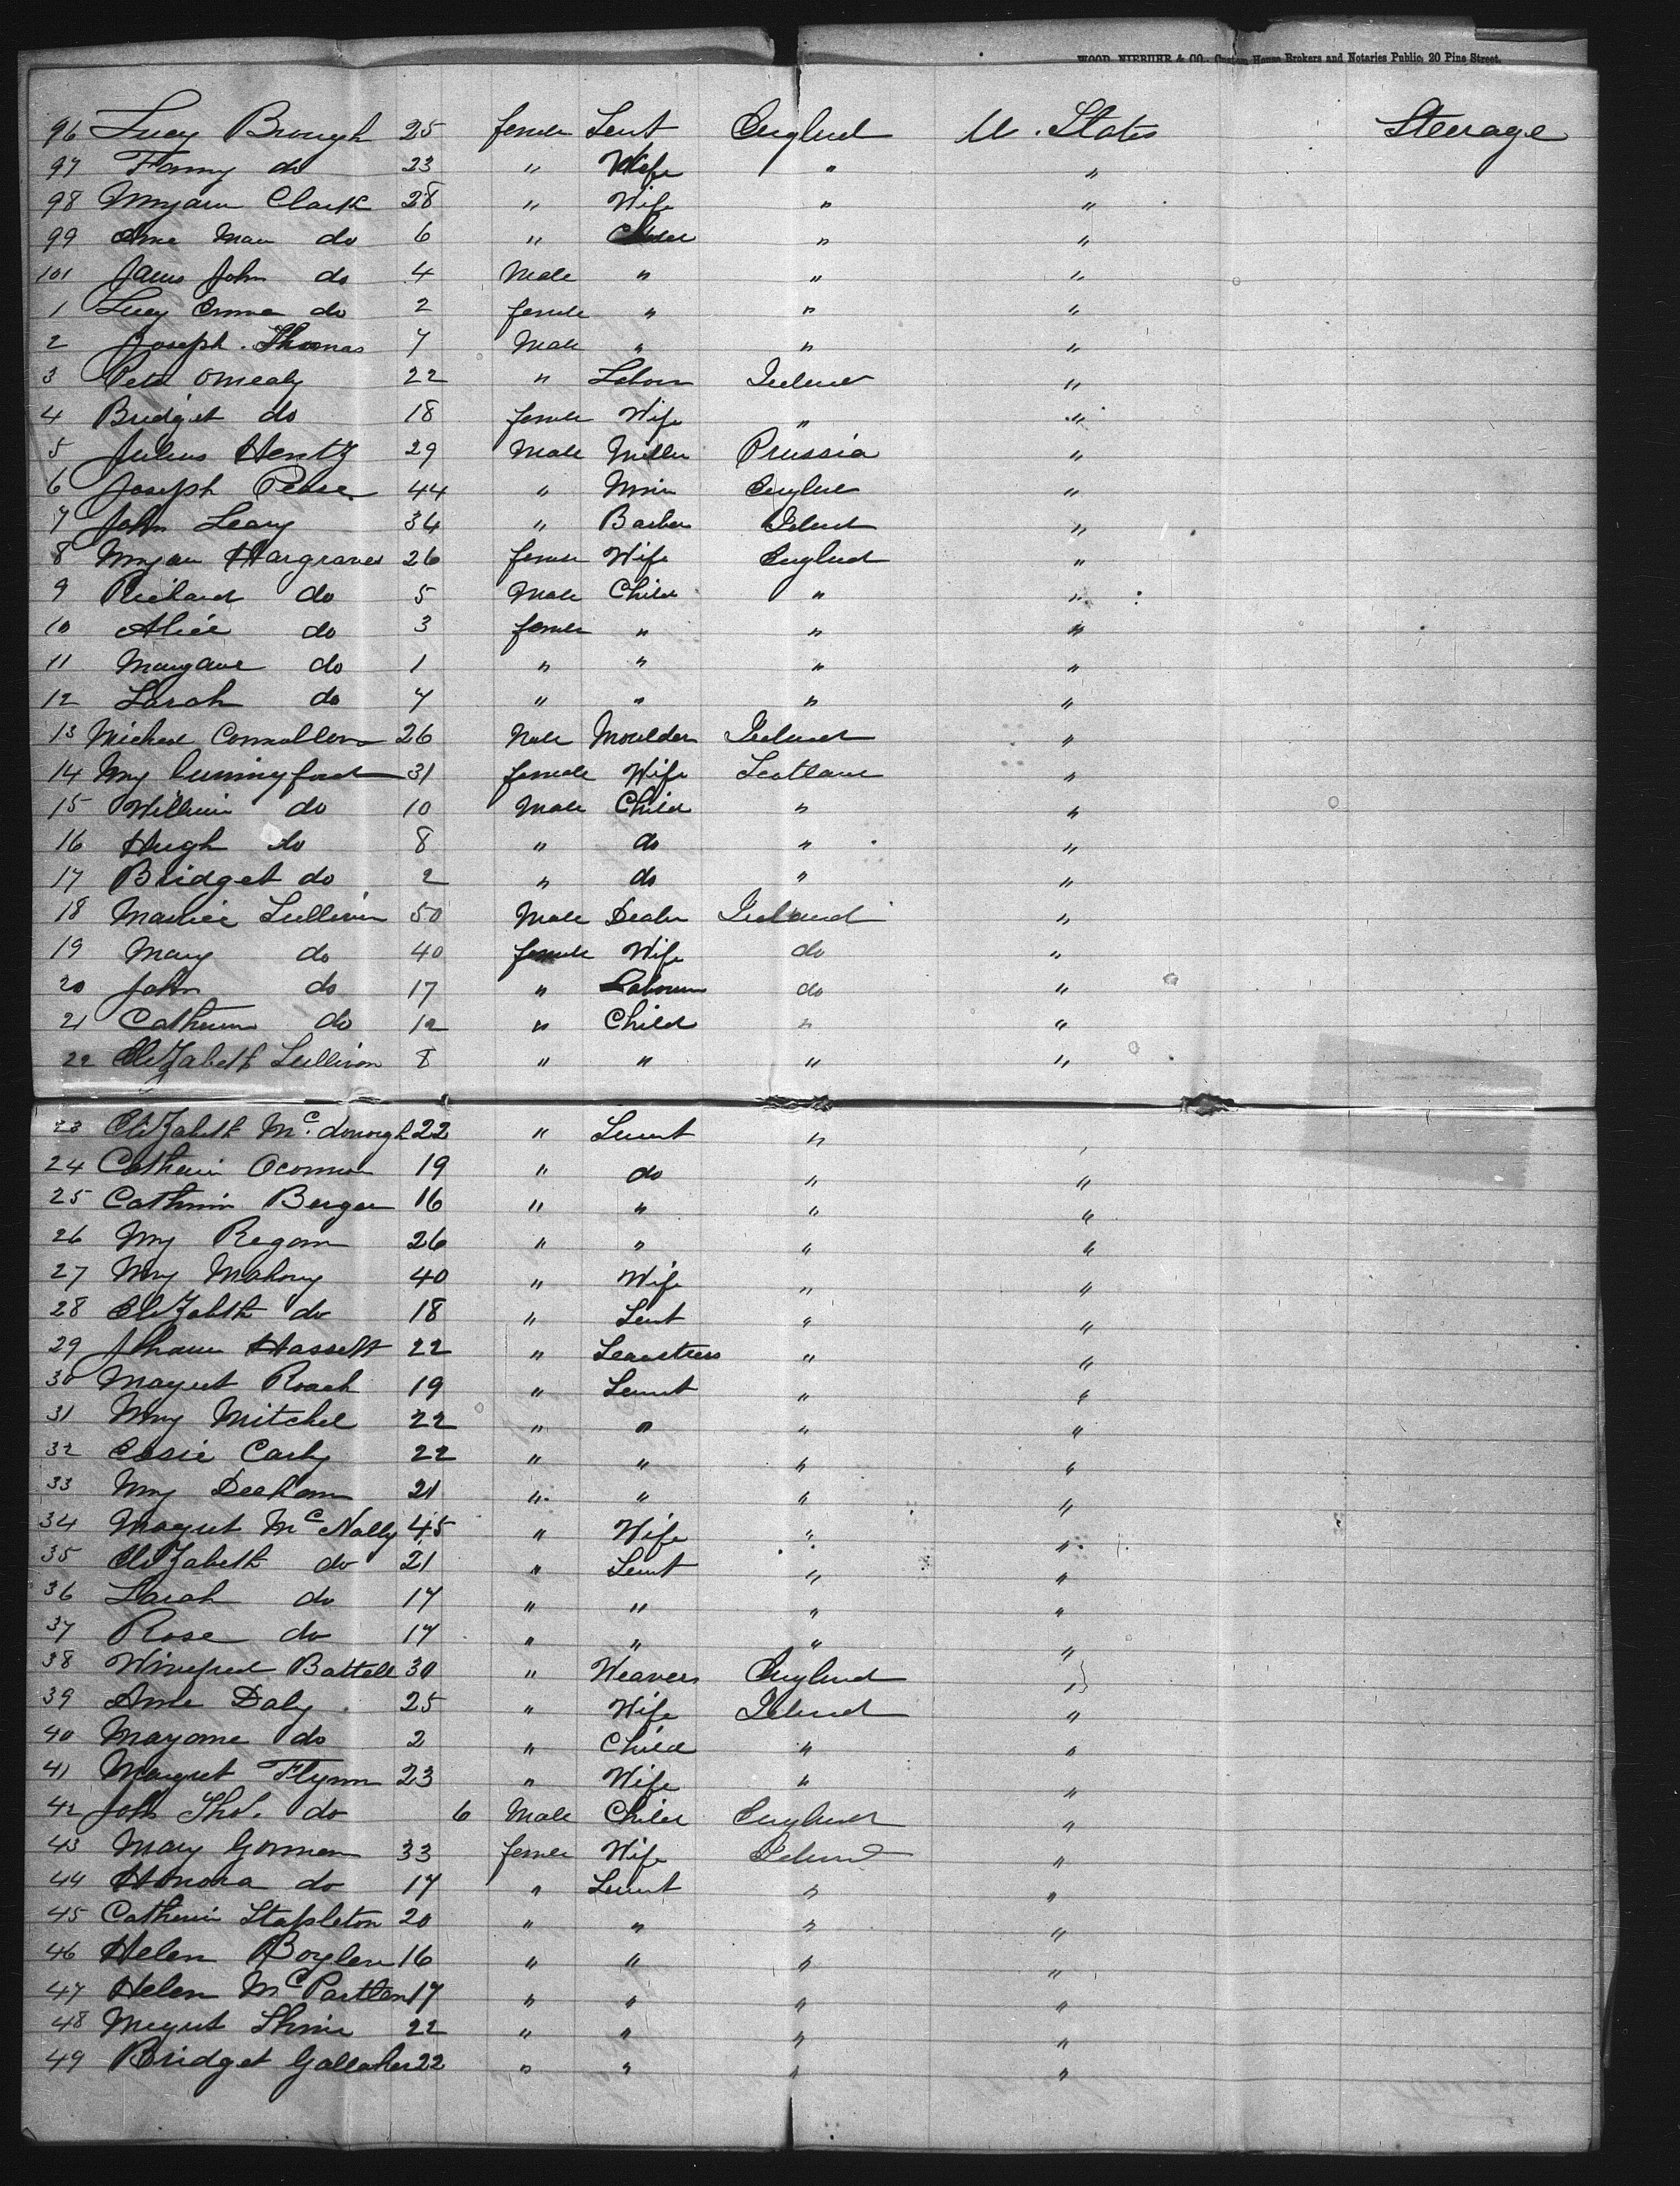 WOOD, NIEBUHR & CO., Custom House Brokers and Notaries Public, 20 Pine Street.
96 Lucy Brough 25 female Servt Englnd U. States Steerage
97 Fanny do 23 " Wife " "
98 Maryann Clark 28 " Wife " "
99 Ame Mau do 6 " Child " "
101 James John do 4 Male " " "
1 Lucy Emma do 2 female " " "
2 Joseph. Thomas 7 Male " " "
3 Peter Omealy 22 " Labour Ireland "
4 Bridget do 18 female Wife " "
5 Julius Hentz 29 Male Miller Prussia "
6 Joseph Pease 44 " Minr Englnd "
7 John Leary 34 " Barber Ireland "
8 Mryan Hargraves 26 female Wife Englnd "
9 Richard do 5 Male Child " "
10 Alice do 3 female " " "
11 Maryane do 1 " " " "
12 Sarah do 7 " " " "
13 Micheal Connollon 26 Male Moulder Ireland "
14 Mry Cunningford 31 female Wife Scotland "
15 William do 10 Male Child " "
16 Hugh do 8 " do " "
17 Bridget do 2 " do " "
18 Maurice Sullivin 50 Male Dealer Ireland "
19 Mary do 40 female Wife do "
20 John do 17 " Labourer do "
21 Catherin do 12 " Child " "
22 Elizabeth Sullivan 8 " " " "
23 Elizabeth Mc.donough 22 " Servnt "
24 Catherin Oconnor 19 " do " "
25 Cathrin Bergen 16 " " " "
26 Mry Regan 26 " " " "
27 Mry Mahony 40 " Wife " "
28 Elizabth do 18 " Servt " "
29 Johann Hassett 22 " Seamstress " "
30 Magret Roach 19 " Servnt " "
31 Mry Mitchel 22 " " " "
32 Essie Carty 22 " " " "
33 Mry Deehan 21 " " " "
34 Magret McNally 45 " Wife " "
35 Elizabeth do 21 " Servt " "
36 Sarah do 17 " " " "
37 Rose do 17 " " " "
38 Winefred Battell 30 " Weavers Englnd "
39 Anne Daly 25 " Wife Ireland "
40 Maryanne do 2 " Child " "
41 Margret Flynn 23 " Wife " "
42 John Thos. do 6 Male Child England "
43 Mary Gorman 33 female Wife Ireland "
44 Honora do 17 " Servnt " "
45 Catherin Stapleton 20 " " " "
46 Helen Boylen 16 " " " "
47 Helen McPartlen 17 " " " "
48 Megret Shine 22 " " " "
49 Bridget Gallaher 22 " " " "